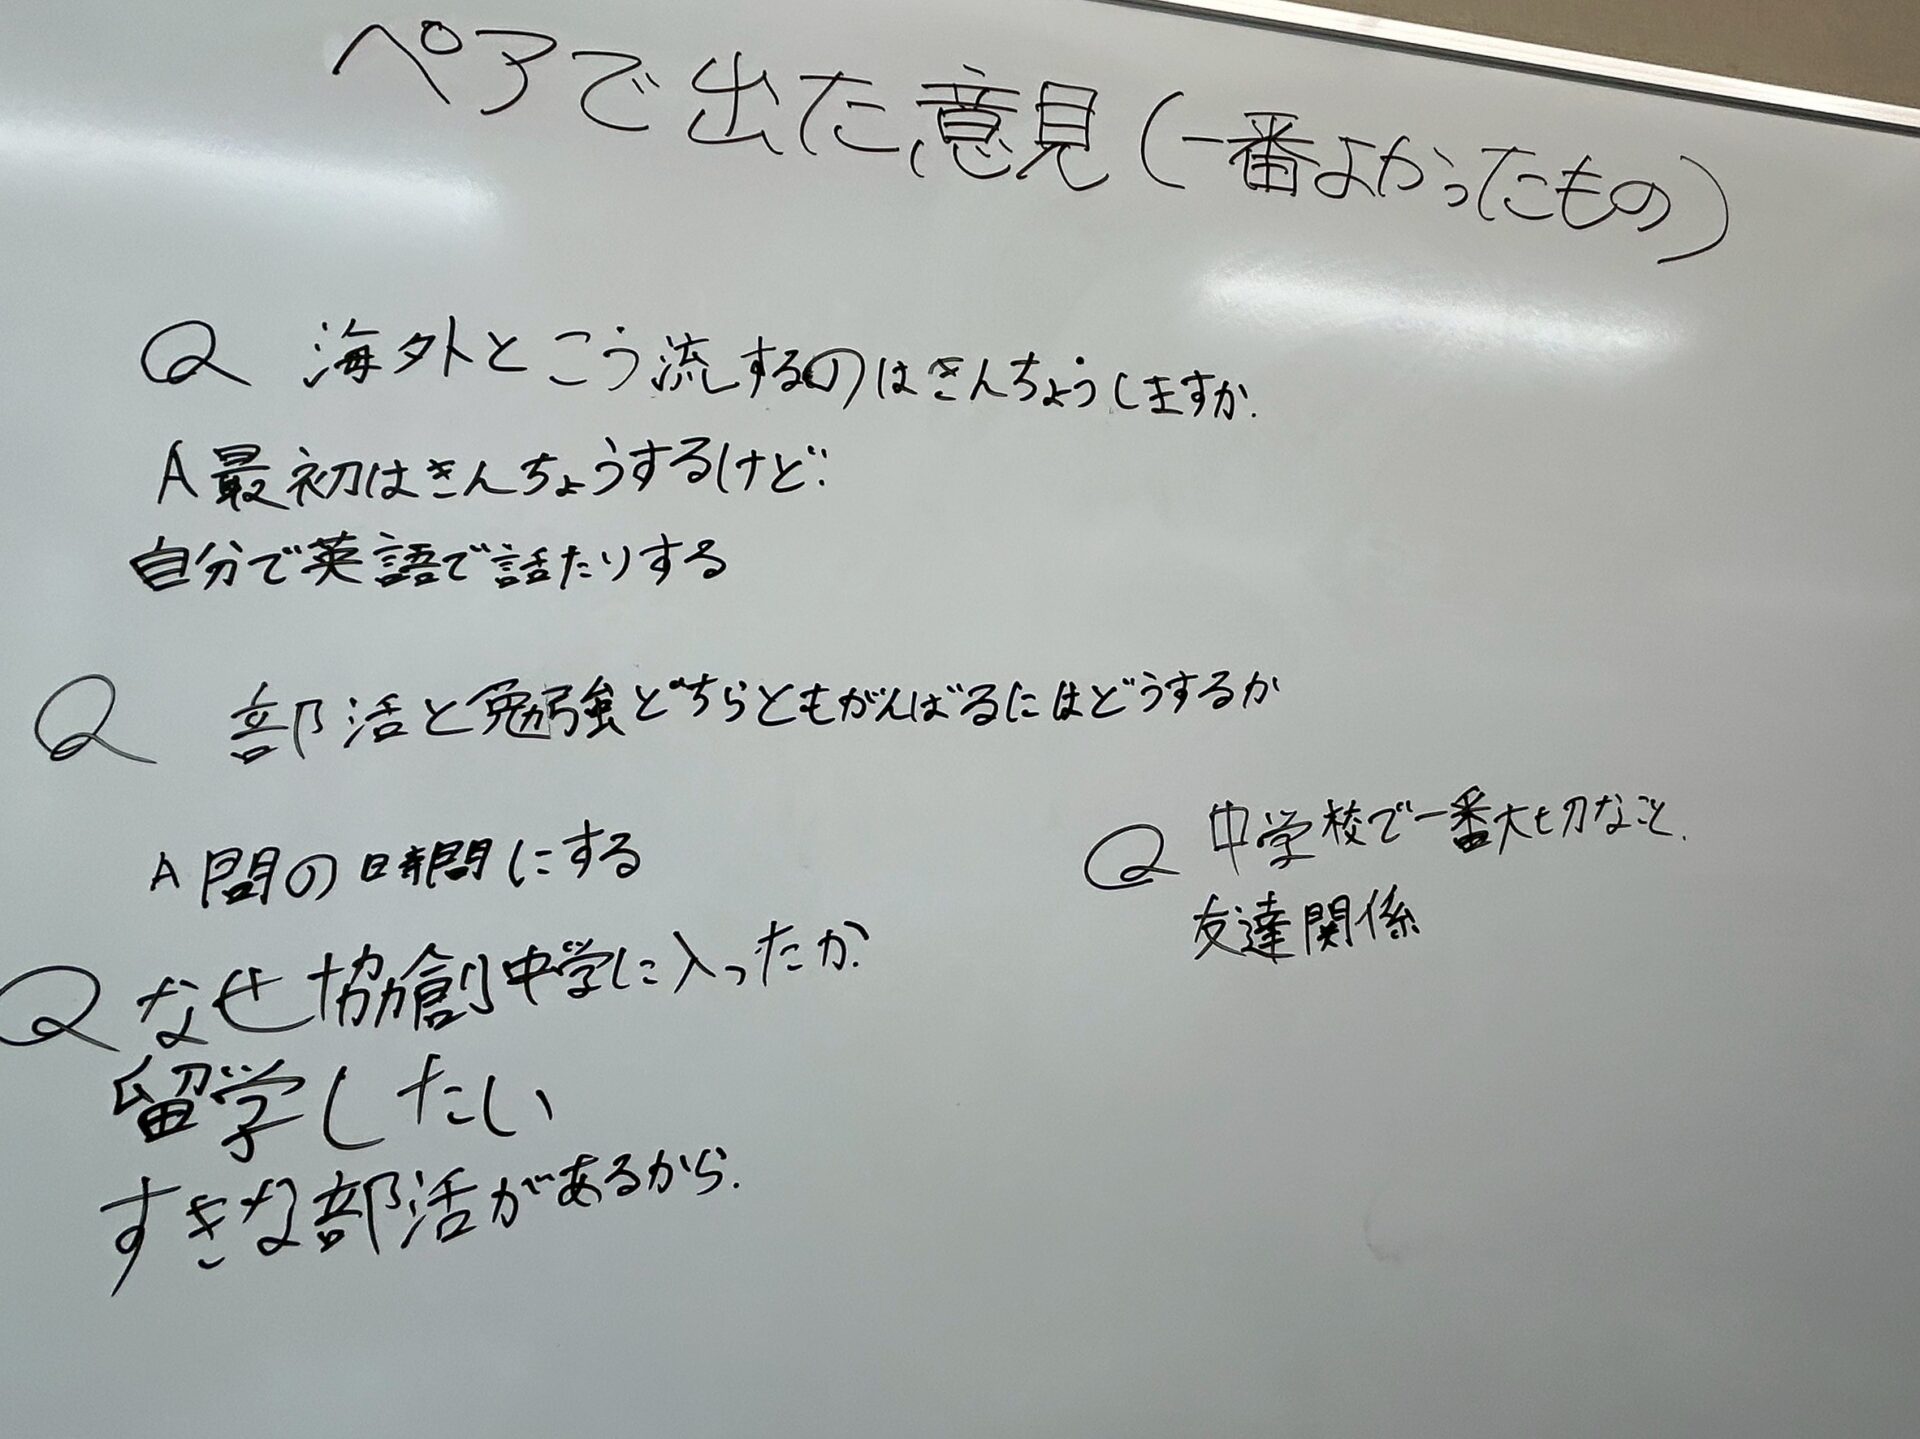 ペアで出た意見(一番よかったもの)
Q 海外とこう流するのはきんちょうしますか.
A 最初はきんちょうするけど
自分で英語で話たりする
Q 部活と勉強どちらともがんばるにはどうするか
A 間の時間にする
Q 中学校で一番大切なこと.
友達関係
Q なぜ協創中学に入ったか.
留学したい
すきな部活があるから.